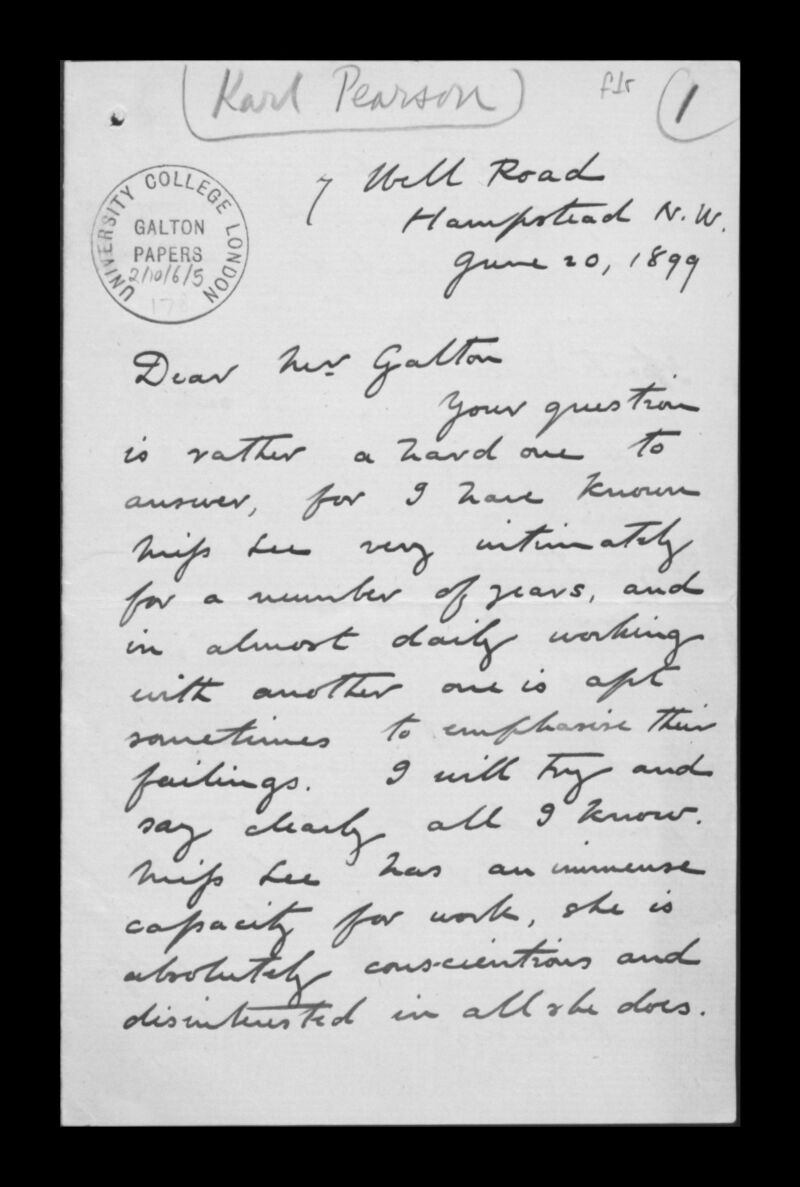 (Karl Pearson)
f1r
1
UNIVERSITY COLLEGE LONDON
GALTON
PAPERS
2/10/6/5
7 Well Road
Hampstead N.W.
June 20, 1899
Dear Mr Galton
Your question
is rather a hard one to
answer, for I have known
Miss Lee very intimately
for a number of years, and
in almost daily working
with another one is apt
sometimes to emphasise their
failings. I will try and
say clearly all I know.
Miss Lee has an immense
capacity for work, she is
absolutely conscientious and
disinterested in all she does.